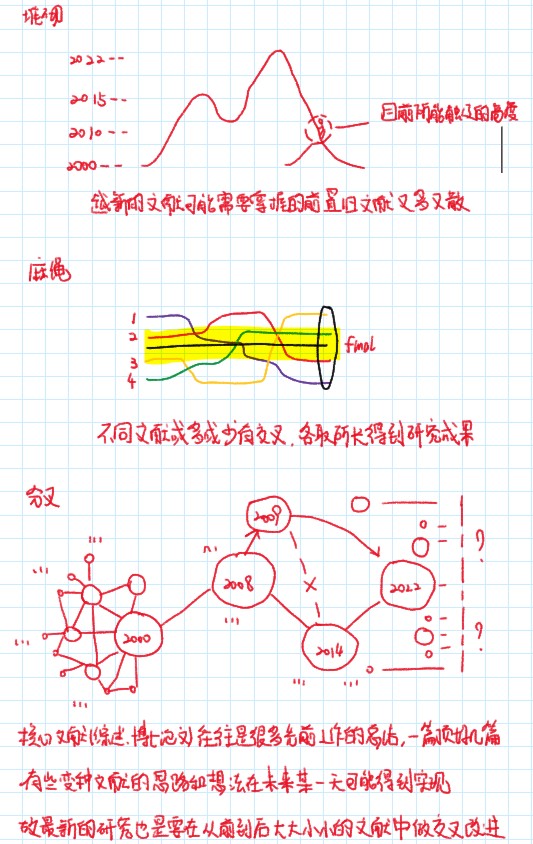 堆砌
2022
2015
2010
2000
目前所能触及的高度
越新的文献可能需要掌握的前置旧文献又多又散
麻绳
1
2
3
4
final
不同文献或多或少有交叉,各取所长得到研究成果
分叉
2009
...
?
...
2008
2022
...
...
2000
...
2014
?
...
...
...
核心文献(综述、博士论文)往往是很多先前工作的总结,一篇顶好几篇
有些变种文献的思路和想法在未来某一天可能得到实现
故最新的研究也是要在从前到后大大小小的文献中做交叉改进